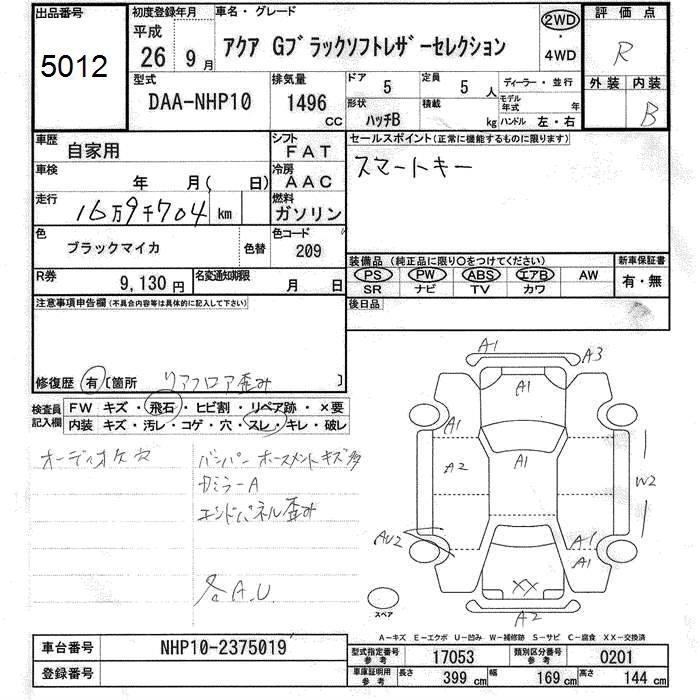 出品番号
5012
初度登録年月
平成
26 9月
車名・グレード
アクア Gブラックソフトレザーセレクション
2WD
・
4WD
評価点
R
外装 内装
B
型式
DAA-NHP10
排気量
1496 CC
ドア 5
形状 ハッチB
定員 5 人
積載 kg
ディーラー・並行
モデル年式 年
ハンドル 左・右
車歴
自家用
シフト
FAT
車検
年 月( 日)
冷房
AAC
走行
16万9千704 km
燃料
ガソリン
色
ブラックマイカ 色替
色コード
209
R券
9,130円
名変通知期限
月 日
セールスポイント(正常に機能するものに限ります)
スマートキー
装備品 (純正品に限り○をつけてください)
PS PW ABS エアB AW
SR ナビ TV カワ
新車保証書
有・無
後日品
注意事項申告欄(不具合内容等は具体的に記入して下さい)
修復歴 有 〔箇所 リアフロア歪み 〕
検査員記入欄
FW キズ・飛石・ヒビ割・リペア跡・×要
内装 キズ・汚レ・コゲ・穴・スレ・キレ・破レ
オーディオケ穴
バンパー ホースメントキズ多
カミラーA
エンドパネル歪み
各A.U.
A1
A3
A1
A1
A2
A1
W2
AU2
A1
A1
XX
A2
スペア
A-キズ E-エクボ U-凹み W-補修跡 S-サビ C-腐食 XX-交換済
車台番号
NHP10-2375019
登録番号
型式指定番号 参考
17053
類別区分番号 参考
0201
車庫証明用 参考
長さ 399 cm
幅 169 cm
高さ 144 cm